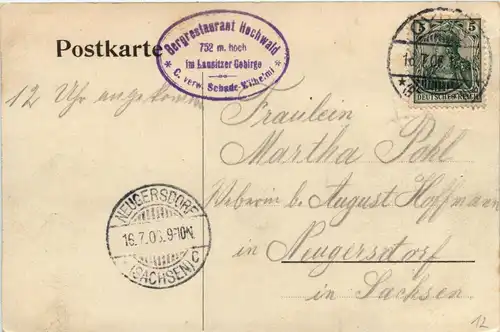 Postkarte
Bergrestaurant Hochwald
752 m. hoch
im Lausitzer Gebirge
* C. verw. Schade-Wilhelmi *
5 5
16.7.06
DEUTSCHES REICH
12 Uhr angekommen
Fräulein
Martha Pohl
Weberin bei August Hoffmann
in Neugersdorf
in Sachsen
NEUGERSDORF
16.7.06.9-10N.
(SACHSEN) C
12